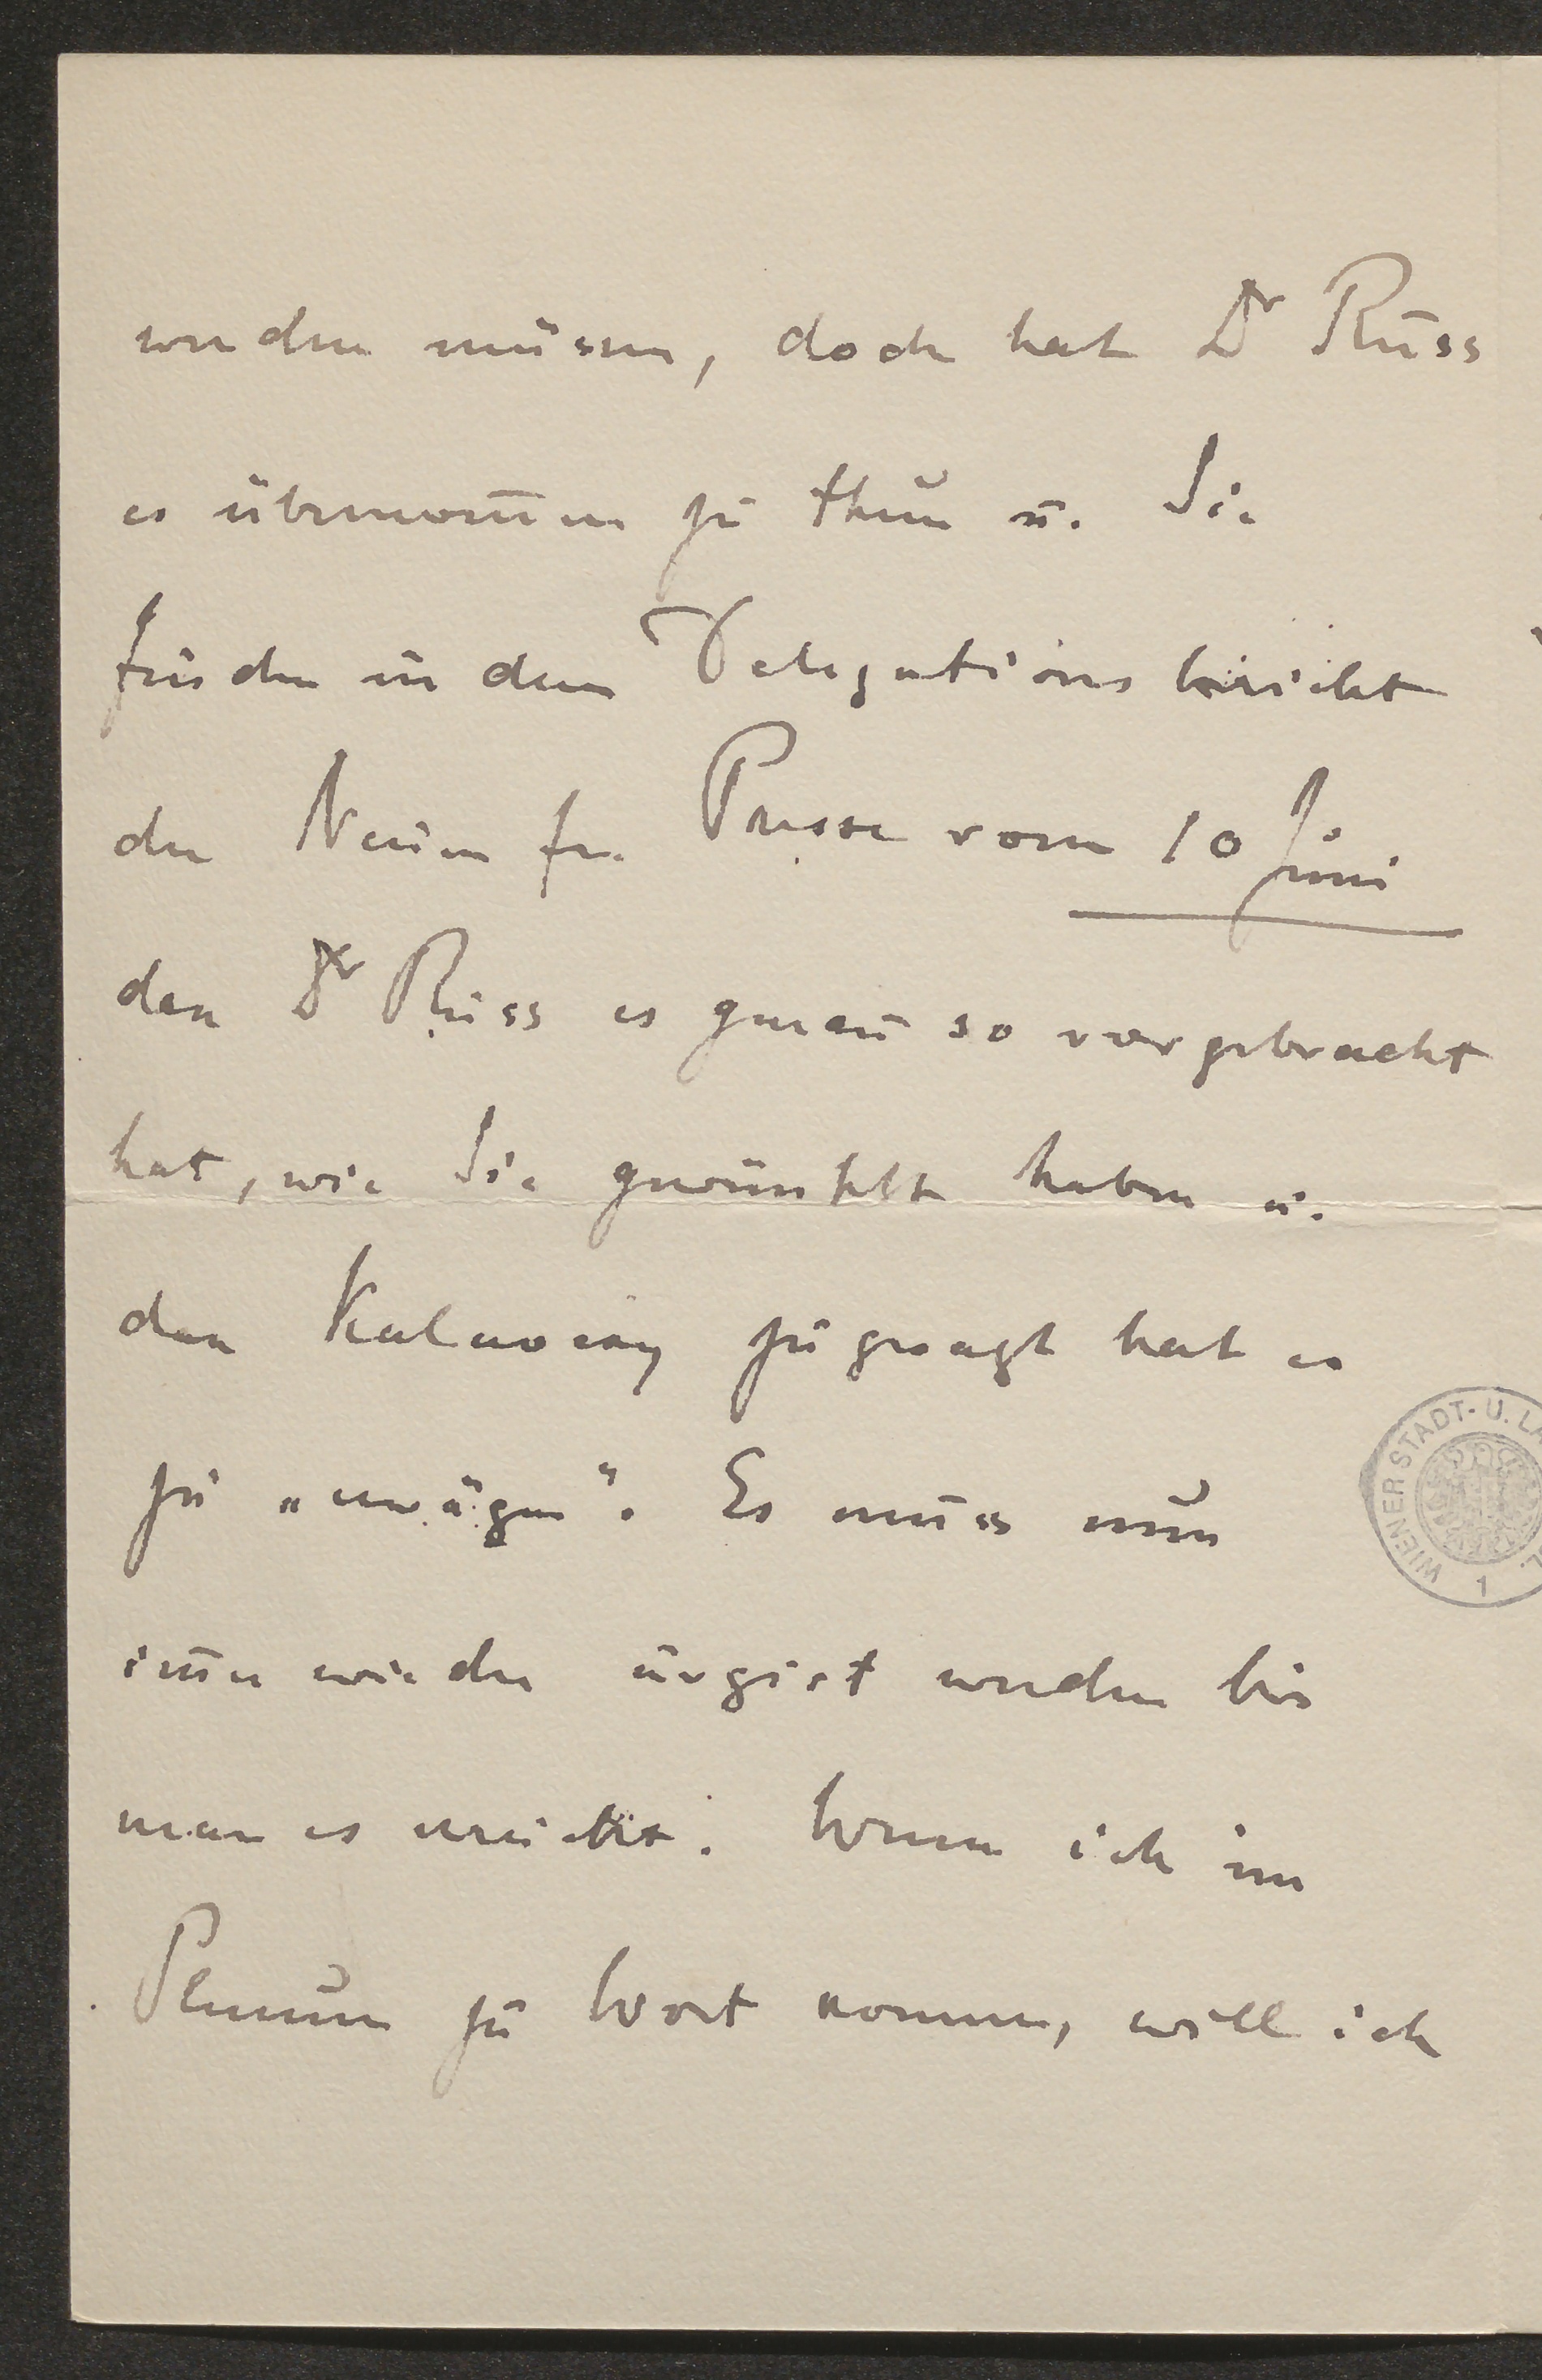 werden müssen, doch hat Dr Russ
es übernom̄en zu thun u. Sie
finden in dem Delegationsbericht
der Neuen fr. Presse vom 10 Juni
dass Dr Russ es genau so vorgebracht
hat, wie Sie gewünscht haben u.
dass Kalnoky zugesagt hat es
zu „erwägen“. Es muss nun
im̄er wieder urgiert werden bis
man es erreicht. Wenn ich im
Plenum zu Wort komme, will ich
WIENER STADT- U. LA
1